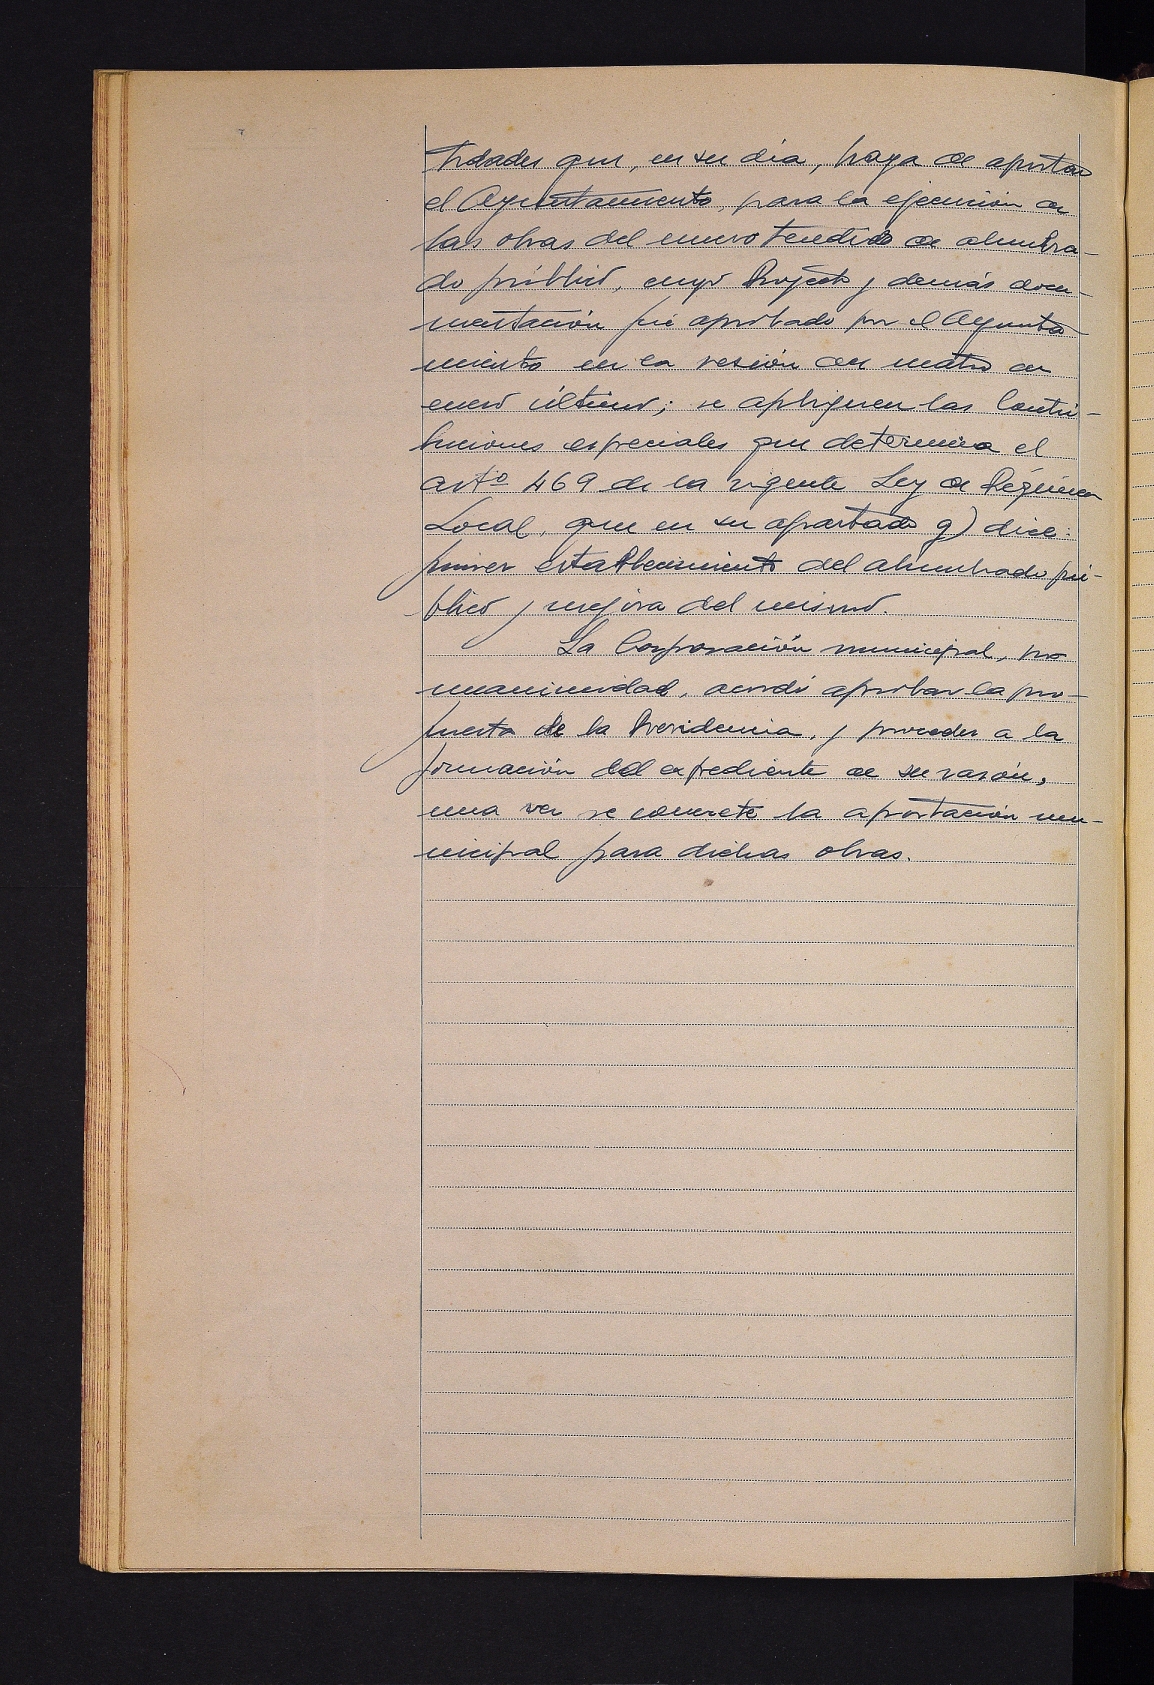 tidades que, en su día, haya de aportar
el Ayuntamiento, para la ejecución de
las obras del nuevo tendido de alumbra-
do público, cuyo Proyecto y demás docu-
mentación fué aprobado por el Ayunta
miento en la sesión del cuatro de
enero último; se apliquen las Contri-
buciones especiales que determina el
artº 469 de la vigente Ley de Régimen
Local, que en su apartado g) dice:
primer establecimiento del alumbrado pú-
blico y mejora del mismo.
La Corporación municipal, por
unanimidad, acordó aprobar la pro-
puesta de la Presidencia, y proceder a la
formación del expediente de su razón,
una vez se concrete la aportación mu-
nicipal para dichas obras.